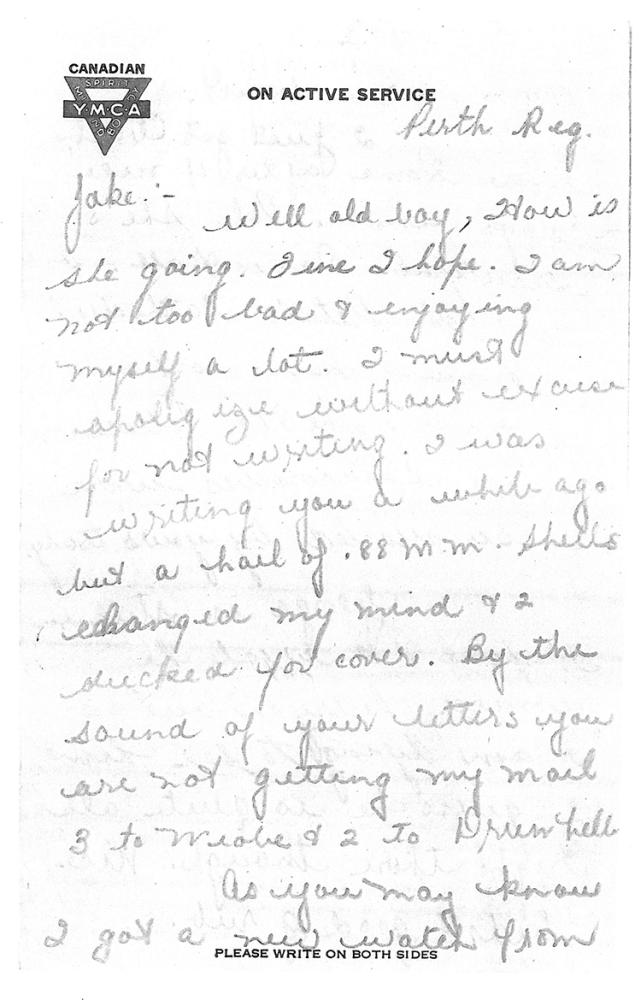 CANADIAN
SPIRIT
Y·M·C·A
MIND BODY
ON ACTIVE SERVICE
Perth Reg.
Jake:-
Well old boy, How is
she going. Fine I hope. I am
not too bad & enjoying
myself a lot. I must
apolig ize without excuse
for not writing. I was
writing you a while ago
but a hail of .88 M.M. Shells
changed my mind & I
ducked for cover. By the
sound of your letters you
are not getting my mail
3 to Wiobe & 2 to Drumhell
As you may know
I got a new watch from
PLEASE WRITE ON BOTH SIDES